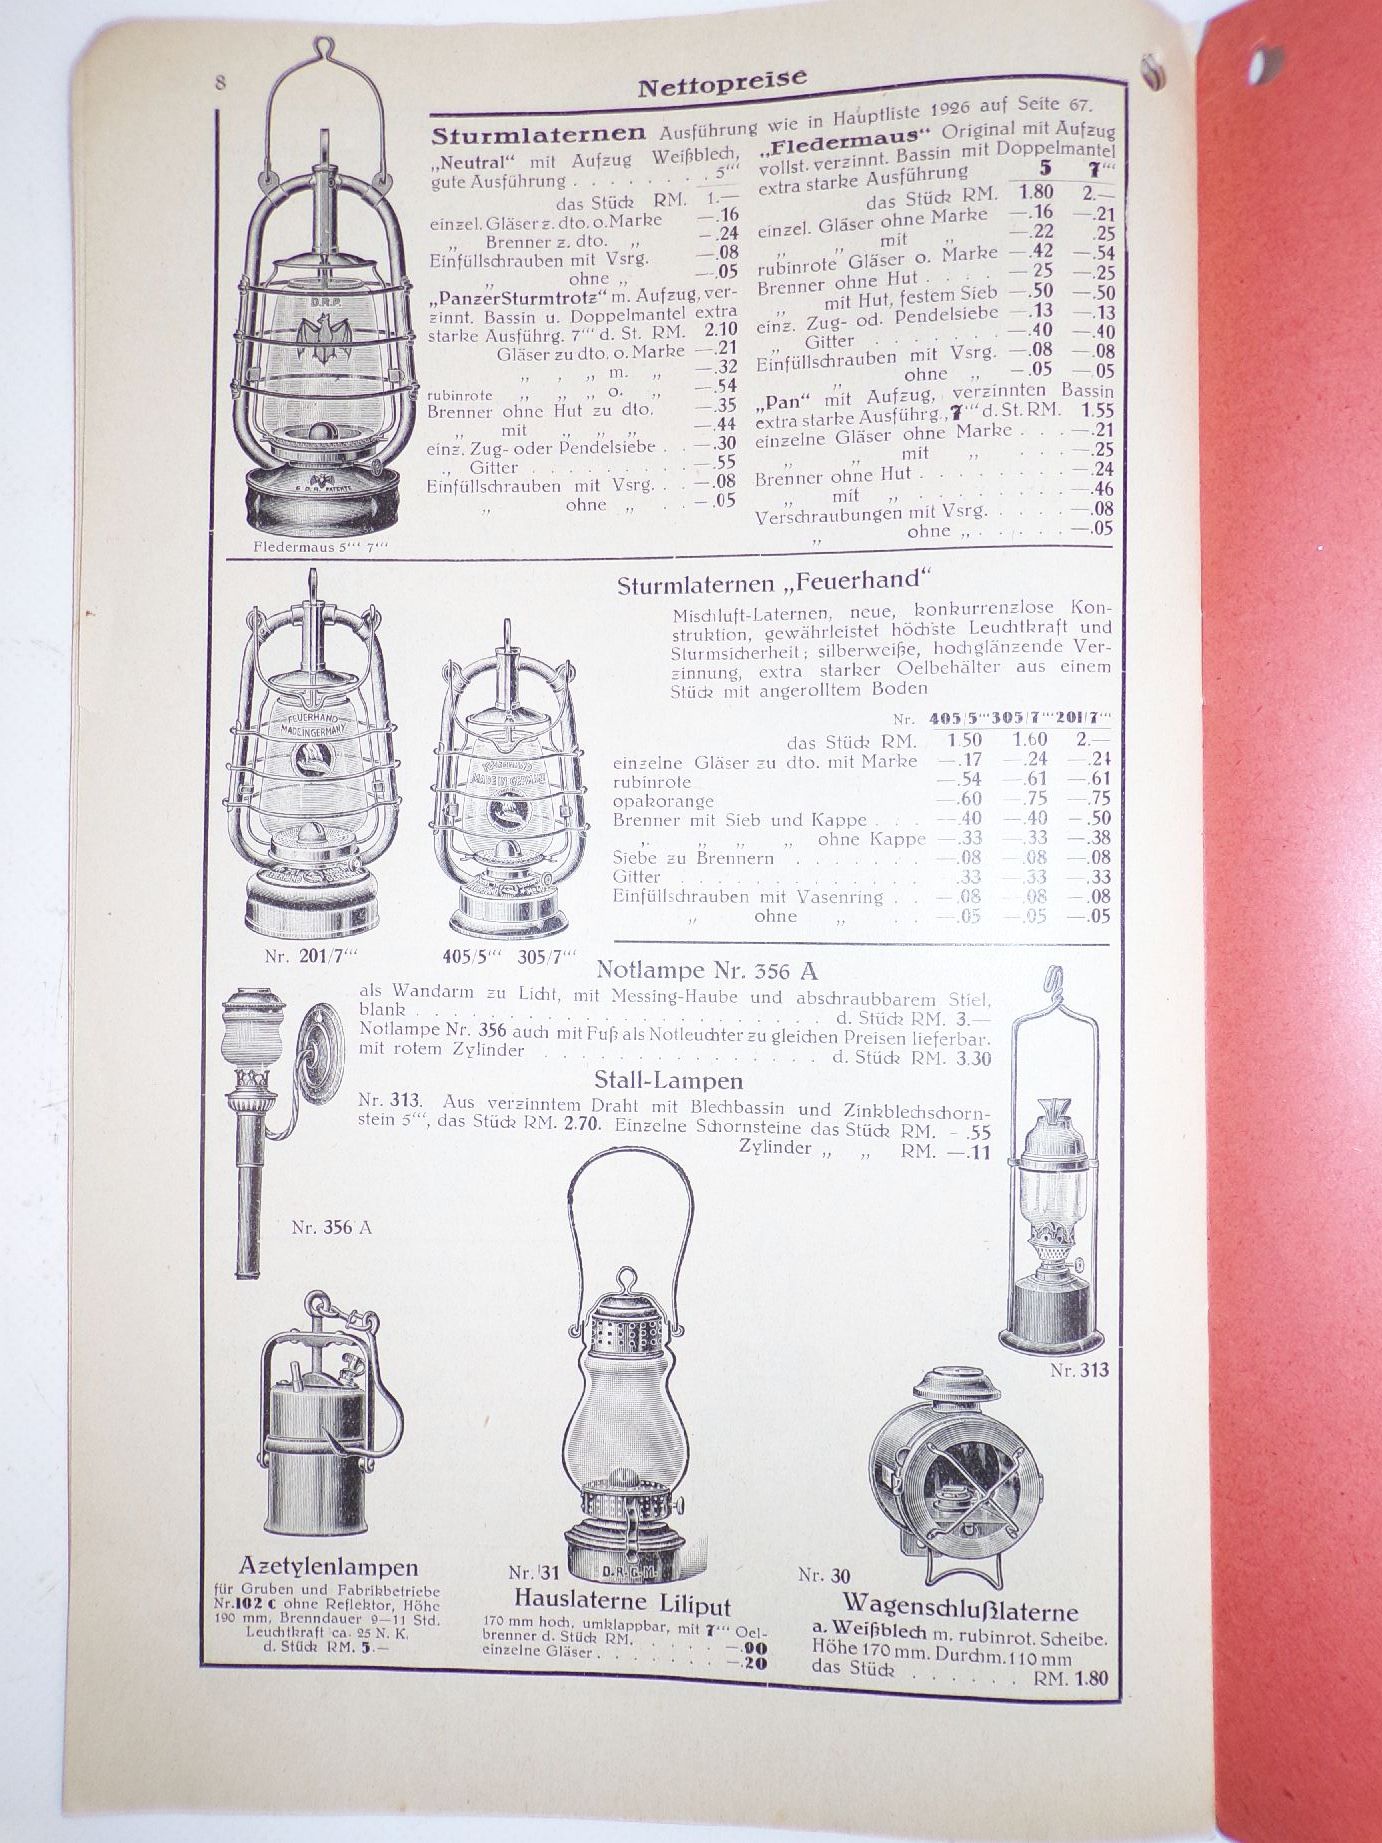 8
Nettopreise
Sturmlaternen Ausführung wie in Hauptliste 1926 auf Seite 67.
„Neutral“ mit Aufzug Weißblech,
gute Ausführung . . . . . . . . 5'''
das Stück RM. 1.—
einzel. Gläser z. dto. o. Marke —.16
„ Brenner z. dto. „ —.24
Einfüllschrauben mit Vsrg. —.08
„ ohne „ —.05
„PanzerSturmtrotz“ m. Aufzug, ver-
zinnt. Bassin u. Doppelmantel extra
starke Ausführg. 7''' d. St. RM. 2.10
Gläser zu dto. o. Marke —.21
„ „ „ m. „ —.32
rubinrote „ „ „ o. „ —.54
Brenner ohne Hut zu dto. —.35
„ mit „ „ „ —.44
einz. Zug- oder Pendelsiebe . . —.30
„ Gitter . . . . . . . . —.55
Einfüllschrauben mit Vsrg. . . —.08
„ ohne „ . . —.05
„Fledermaus“ Original mit Aufzug
vollst. verzinnt. Bassin mit Doppelmantel
extra starke Ausführung 5 7'''
das Stück RM. 1.80 2.—
einzel. Gläser ohne Marke —.16 —.21
„ „ mit „ —.22 .25
rubinrote Gläser o. Marke —.42 —.54
Brenner ohne Hut . . . . —25 —.25
„ mit Hut, festem Sieb —.50 —.50
einz. Zug- od. Pendelsiebe —.13 —.13
„ Gitter . . . . . . . —.40 —.40
Einfüllschrauben mit Vsrg. —.08 —.08
„ ohne „ —.05 —05
„Pan“ mit Aufzug, verzinnten Bassin
extra starke Ausführg., 7''' d. St. RM. 1.55
einzelne Gläser ohne Marke . . . —.21
„ „ mit „ . . . —.25
Brenner ohne Hut . . . . . . . . —.24
„ mit „ . . . . . . . . —.46
Verschraubungen mit Vsrg. . . . . —.08
„ ohne „ . . . . . —.05
D.R.P.
G. D. R. PATENTE
Fledermaus 5''' 7'''
Sturmlaternen „Feuerhand“
Mischluft-Laternen, neue, konkurrenzlose Kon-
struktion, gewährleistet höchste Leuchtkraft und
Sturmsicherheit; silberweiße, hochglänzende Ver-
zinnung, extra starker Oelbehälter aus einem
Stück mit angerolltem Boden
Nr. 405/5''' 305/7''' 201/7'''
das Stück RM. 1 50 1.60 2.—
einzelne Gläser zu dto. mit Marke —.17 —.24 —.24
rubinrote —.54 —.61 —.61
opakorange —.60 —.75 —.75
Brenner mit Sieb und Kappe . . . —.40 —.40 —.50
„ „ „ „ ohne Kappe —.33 —.33 —.38
Siebe zu Brennern . . . . . . . —.08 —.08 —.08
Gitter . . . . . . . . . . . . .33 —.33 —.33
Einfüllschrauben mit Vasenring . . —.08 —.08 —.08
„ ohne „ . . —.05 —.05 —.05
FEUERHAND
MADE IN GERMANY
FEUERHAND
MADE IN GERMANY
Nr. 201/7''' 405/5''' 305/7'''
Notlampe Nr. 356 A
als Wandarm zu Licht, mit Messing-Haube und abschraubbarem Stiel,
blank . . . . . . . . . . . . . . . . . . . . . . d. Stück RM. 3.—
Notlampe Nr. 356 auch mit Fuß als Notleuchter zu gleichen Preisen lieferbar.
mit rotem Zylinder . . . . . . . . . . . . . . . d. Stück RM. 3.30
Stall-Lampen
Nr. 313. Aus verzinntem Draht mit Blechbassin und Zinkblechschorn-
stein 5''', das Stück RM. 2.70. Einzelne Schornsteine das Stück RM. – .55
Zylinder „ „ RM. —.11
Nr. 356 A
Nr. 313
Azetylenlampen
für Gruben und Fabrikbetriebe
Nr.102 C ohne Reflektor, Höhe
190 mm, Brenndauer 9—11 Std.
Leuchtkraft ca. 25 N. K.
d. Stück RM. 5.—
D.R.G.M.
Nr. 31
Hauslaterne Liliput
170 mm hoch, umklappbar, mit 7''' Oel-
brenner d. Stück RM. . . . . . —.90
einzelne Gläser . . . . . . . . —.20
Nr. 30
Wagenschlußlaterne
a. Weißblech m. rubinrot. Scheibe.
Höhe 170 mm. Durchm. 110 mm
das Stück . . . . . . RM. 1.80